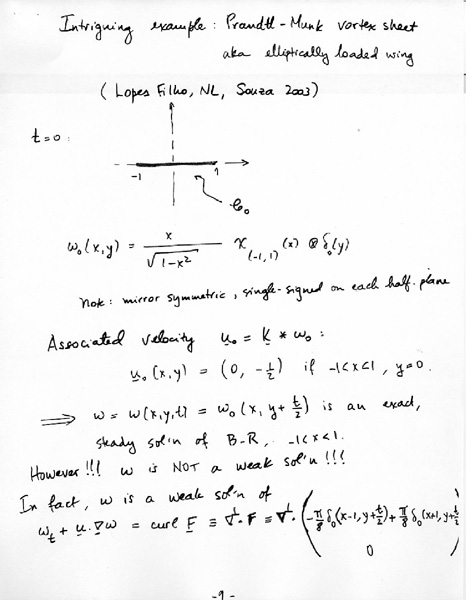 Intriguing example: Prandtl-Munk vortex sheet
aka elliptically loaded wing
(Lopes Filho, NL, Souza 2003)
t=0:
-1 1
𝒞₀
ω₀(x,y) = x/√(1-x²) χ_(-1,1)(x) ⊗ δ₀(y)
Note: mirror symmetric, single-signed on each half-plane
Associated velocity u₀ = K * ω₀:
u₀(x,y) = (0, -1/2) if -1<x<1, y=0.
⟹ ω = ω(x,y,t) = ω₀(x, y+t/2) is an exact,
steady sol'n of B-R, -1<x<1.
However!!! ω is NOT a weak sol'n!!!
In fact, ω is a weak sol'n of
ω_t + u·∇ω = curl F ≡ ∇^⊥·F ≡ ∇^⊥·(-π/8 δ₀(x-1, y+t/2) + π/8 δ₀(x+1, y+t/2)
0)
-9-